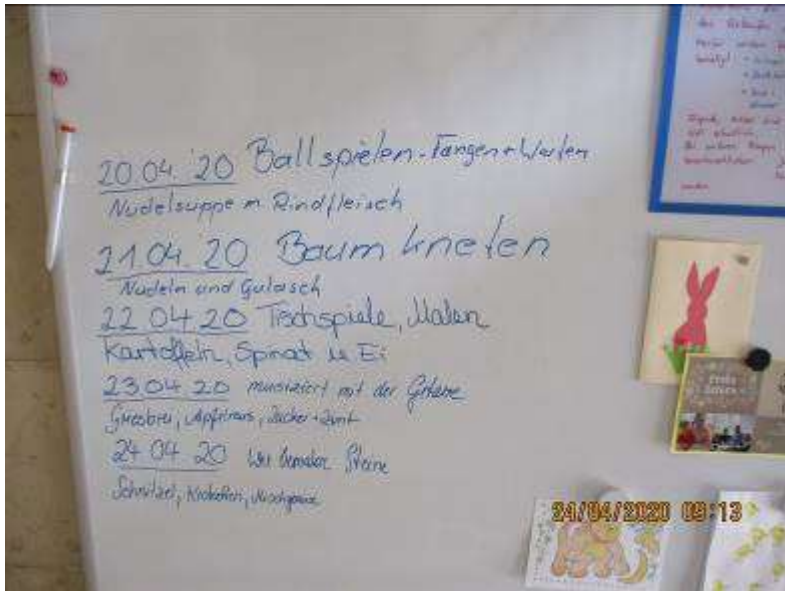 20.04.'20 Ballspielen - Fangen + Werfen
Nudelsuppe m Rindfleisch
21.04.20 Baum kneten
Nudeln und Gulasch
22.04.20 Tischspiele, Malen
Kartoffeln, Spinat u Ei
23.04.20 musiziert mit der Gitarre
Griesbrei, Apfelmus, Zucker + Zimt
24.04.20 Wir bemalen Steine
Schnitzel, Kartoffeln, Mischgemüse
Frohe
Ostern
24/04/2020 09:13